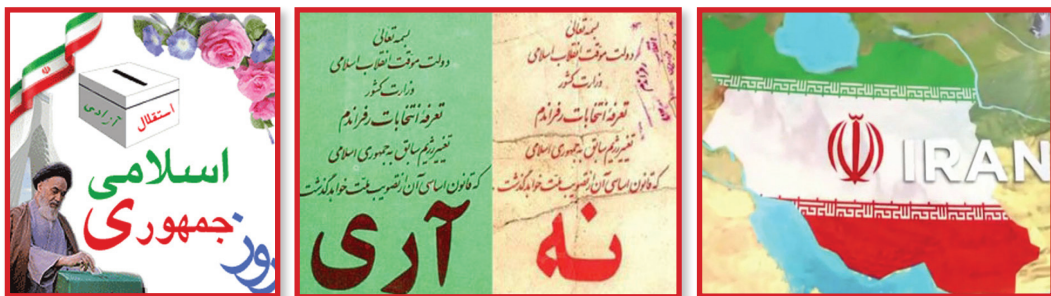 استقلال
آزادی
اسلامی
روز جمهوری
بسمه تعالی
دولت موقت انقلاب اسلامی
وزارت کشور
تعرفه انتخابات رفراندم
تغییر رژیم سابق به جمهوری اسلامی
که قانون اساسی آن از تصویب ملت خواهد گذشت
آری
بسمه تعالی
دولت موقت انقلاب اسلامی
وزارت کشور
تعرفه انتخابات رفراندم
تغییر رژیم سابق به جمهوری اسلامی
که قانون اساسی آن از تصویب ملت خواهد گذشت.
نه
IRAN